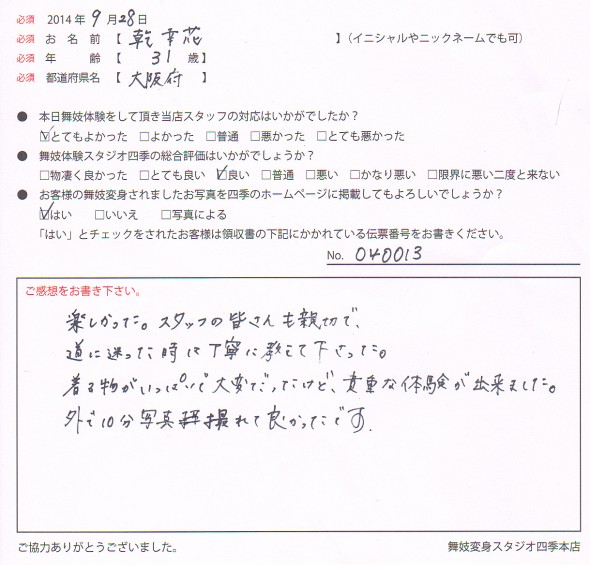 必須 2014年 9月28日
必須 お名前【 乾幸花 】(イニシャルやニックネームでも可)
必須 年齢【 31 歳】
必須 都道府県名【 大阪府 】
● 本日舞妓体験をして頂き当店スタッフの対応はいかがでしたか?
☑とてもよかった □よかった □普通 □悪かった □とても悪かった
● 舞妓体験スタジオ四季の総合評価はいかがでしょうか?
□物凄く良かった □とても良い ☑良い □普通 □悪い □かなり悪い □限界に悪い二度と来ない
● お客様の舞妓変身されましたお写真を四季のホームページに掲載してもよろしいでしょうか?
☑はい □いいえ □写真による
「はい」とチェックをされたお客様は領収書の下記にかかれている伝票番号をお書きください。
No. 040013
ご感想をお書き下さい。
楽しかった。スタッフの皆さんも親切で、
道に迷った時は丁寧に教えて下さった。
着る物がいっぱいで大変だったけど、貴重な体験が出来ました。
外で10分写真撮れて良かったです.
ご協力ありがとうございました。
舞妓変身スタジオ四季本店